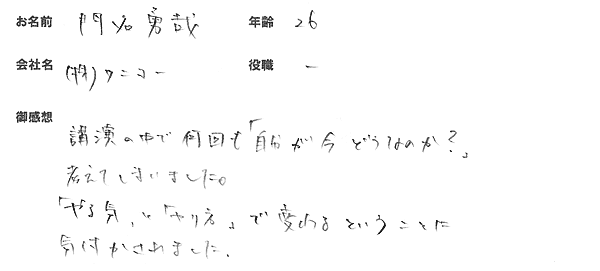 お名前 門名勇哉 年齢 26
会社名 (株)ワニコー 役職 ー
御感想
講演の中で何回も「自分が今どうなのか?」
考えてしまいました。
「やる気」と「やり方」で変わるということに
気付かされました。